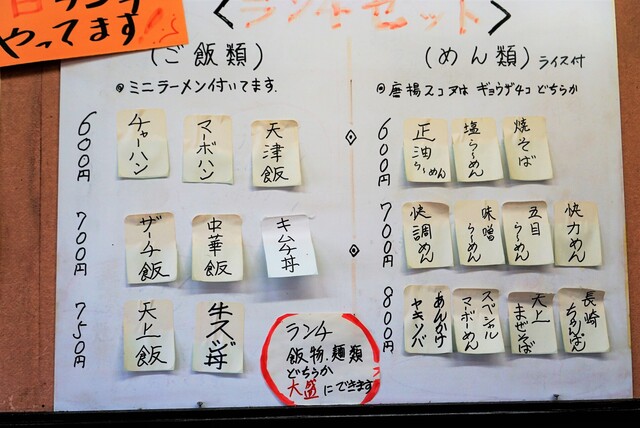 日ランチ
やってます!!
<ランチセット>
(ご飯類)
◎ミニラーメン付いてます.
600円
チャーハン
マーボハン
天津飯
700円
ザーチ飯
中華飯
キムチ丼
750円
天上飯
牛スジ丼
(めん類)ライス付
◎唐揚スコヌは ギョウザ4コ どちらか
600円
正油らーめん
塩らーめん
焼そば
700円
快調めん
味噌らーめん
五目らーめん
快力めん
800円
あんかけヤキソバ
スペシャルマーボーめん
天上まぜそば
長崎ちゃんぽん
ランチ
飯物.麺類
どちらか
大盛にできます